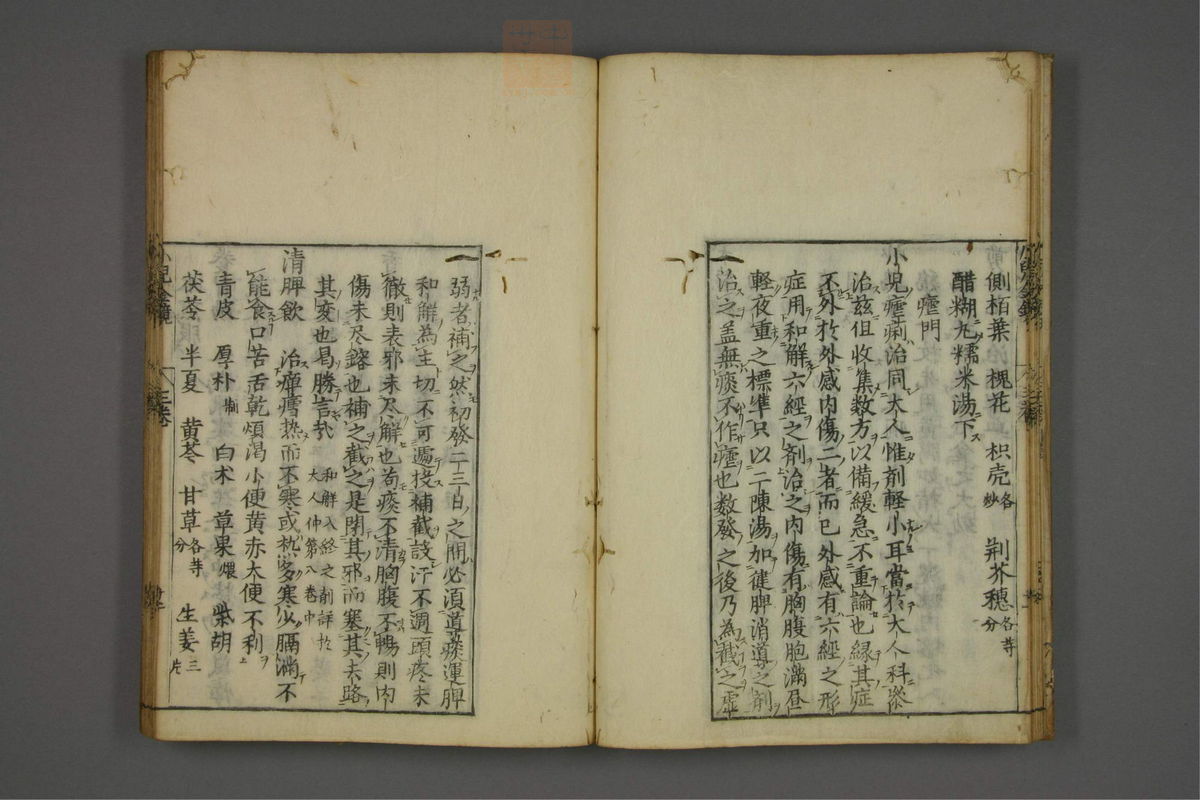 側栢葉 槐花 枳壳各炒 荆芥穗各等分
醋糊丸糯米湯下
瘧門
小児瘧痢治同大人惟剤軽小耳當於大人科叅
治玆但収集数方以備緩急不重論也縁其症
不外於外感内傷二者而已外感有六經之形
症用和解六經之剤治之内傷有胸腹胞滿昼
軽夜重之標準只以二陳湯加健脾消導之剤
治之盖無痰不作瘧也数發之後乃為截之虚
弱者補之然初發二三日之間必須道痰運脾
和解為主切不可遽投補截設汗不週頭疼未
徹則表邪未尽解也苟痰不清胸腹不暢則内
傷未尽鎔也補之截之是閉其邪而塞其去路
其変也曷勝言㢤 和解入經之剤詳於大人仲第八巻中
清脾飲 治癉瘧热而不寒或热多寒少膈滿不
能食口苦舌乾煩渇小便黄赤大便不利
青皮 厚朴制 白术 草果煨 柴胡
茯苓 半夏 黄芩 甘草各等分 生姜三片
三巻